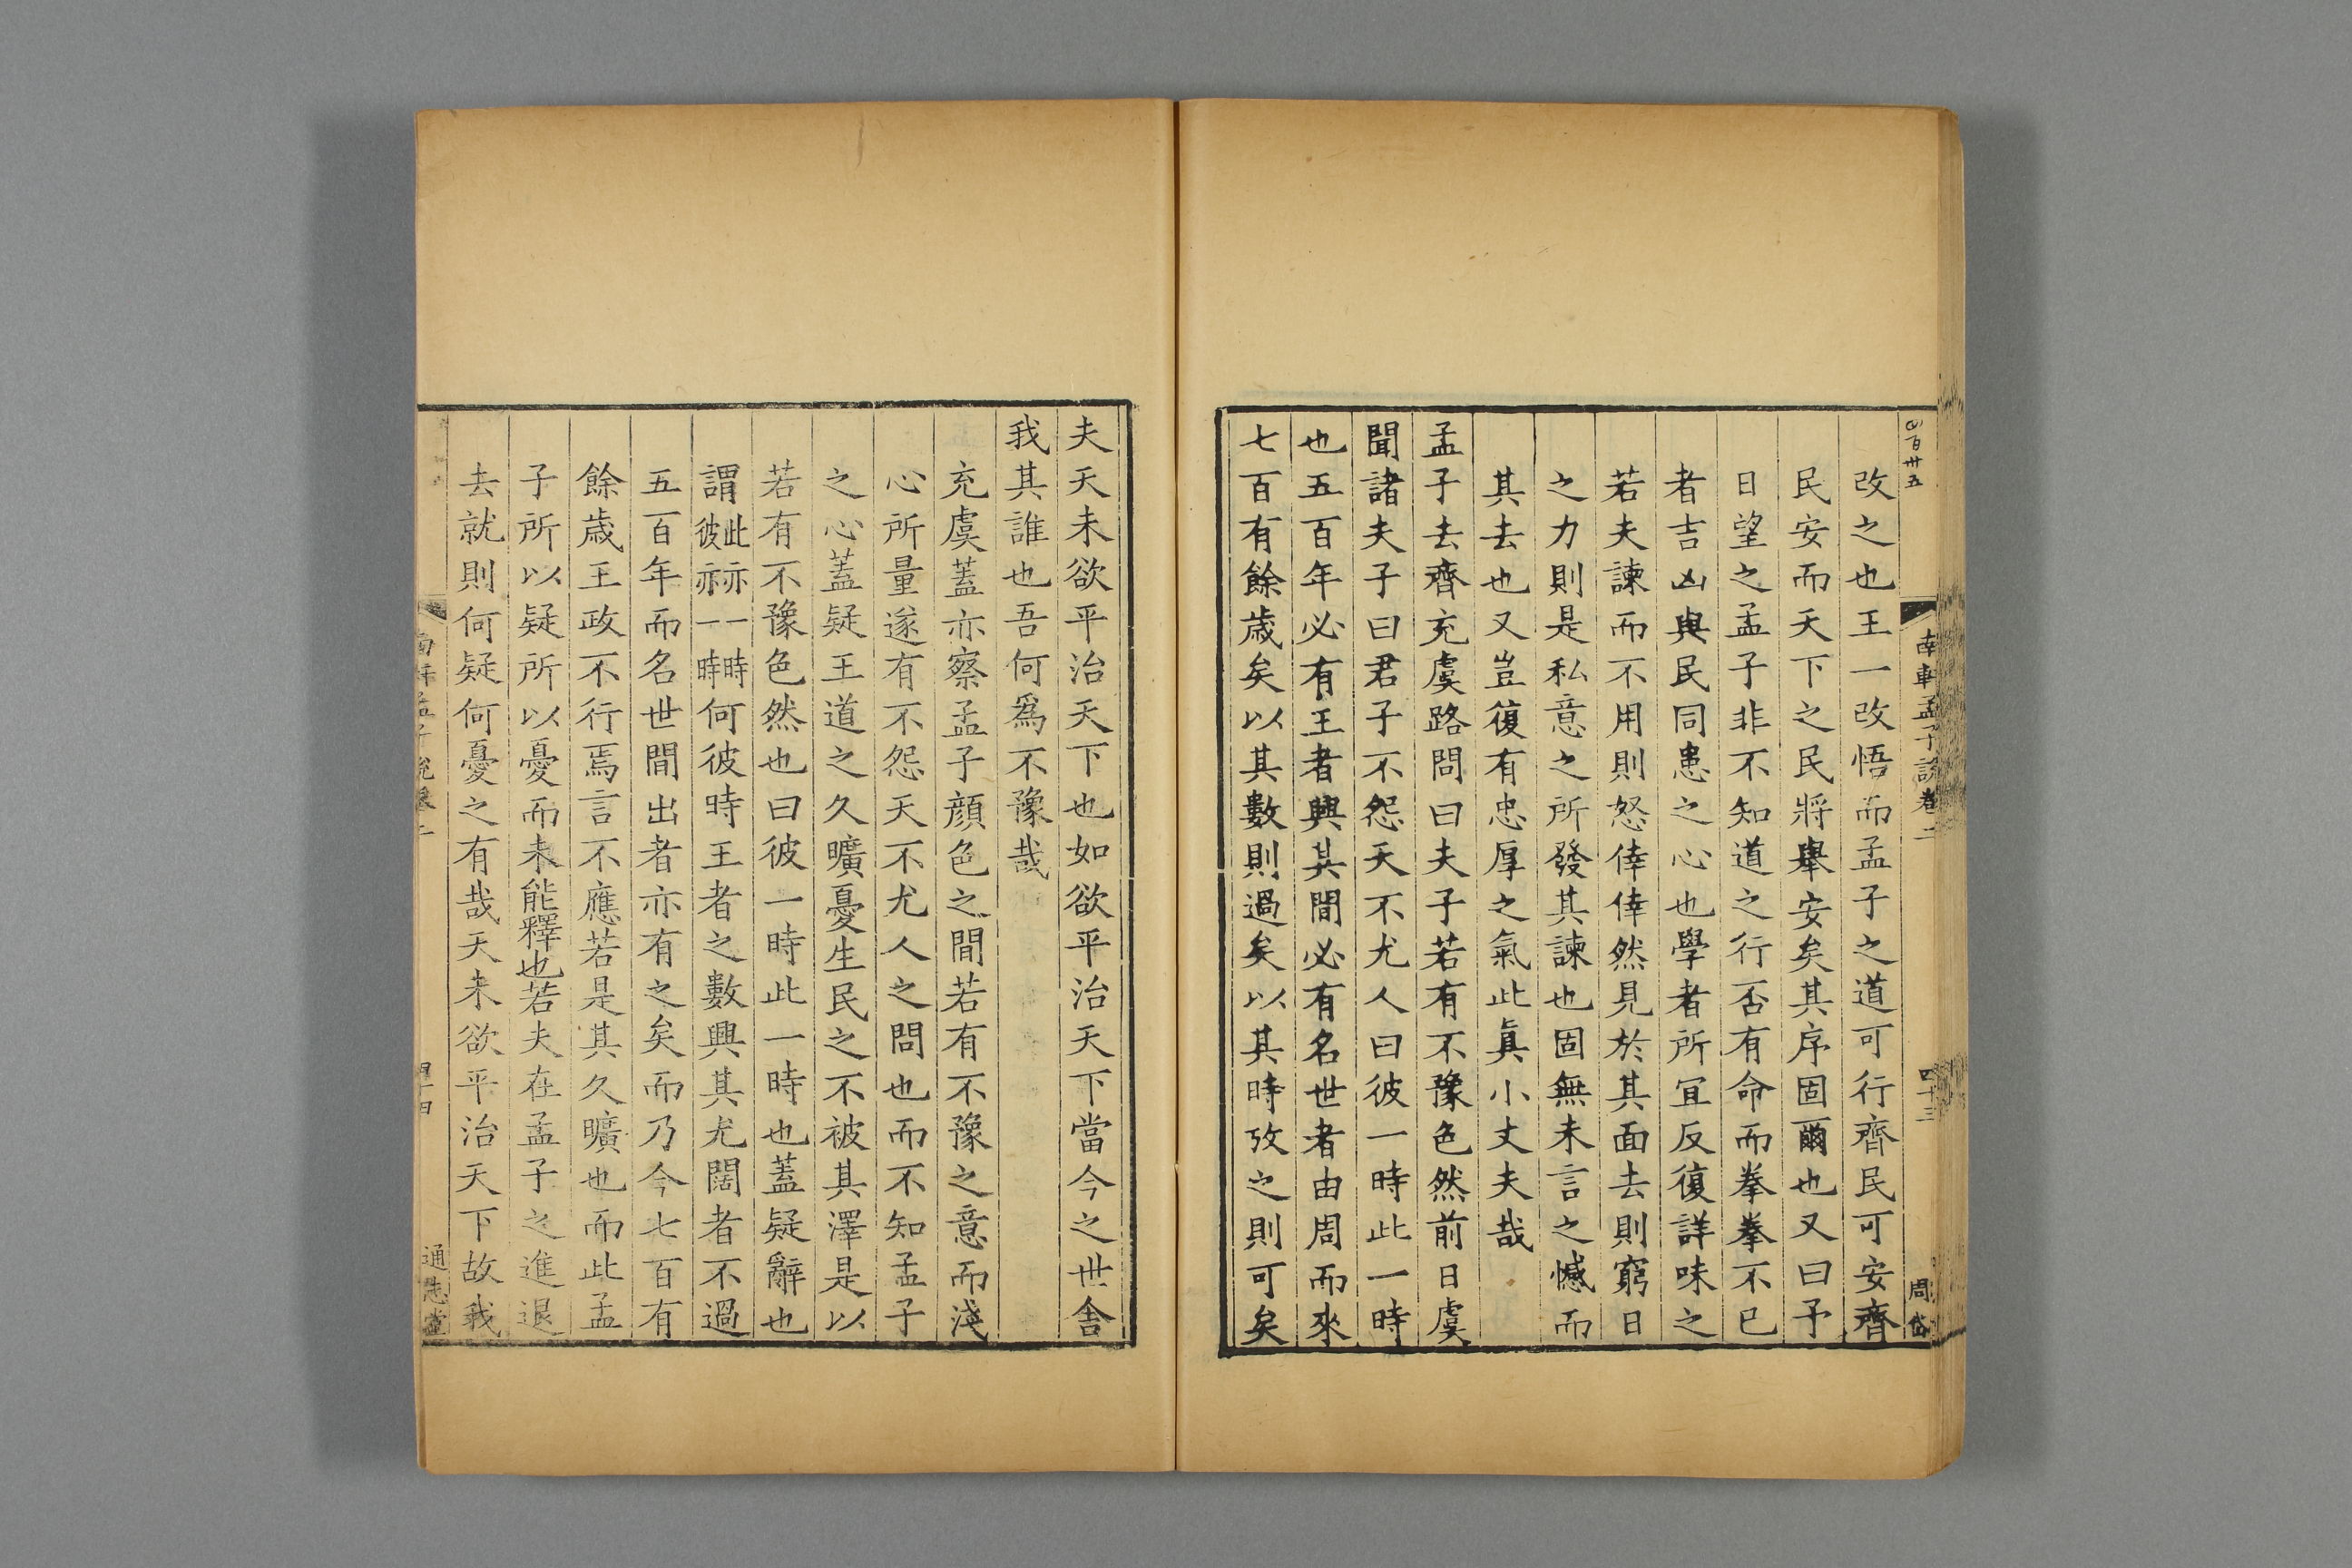 四百卅五
南軒孟子說卷二
四十三
周岱
改之也王一改悟而孟子之道可行齊民可安齊
民安而天下之民將舉安矣其序固爾也又曰予
日望之孟子非不知道之行否有命而拳拳不已
者吉凶與民同患之心也學者所宜反復詳味之
若夫諫而不用則怒倖倖然見於其面去則窮日
之力則是私意之所發其諫也固無未言之憾而
其去也又豈復有忠厚之氣此眞小丈夫哉
孟子去齊充虞路問曰夫子若有不豫色然前日虞
聞諸夫子曰君子不怨天不尤人曰彼一時此一時
也五百年必有王者興其間必有名世者由周而來
七百有餘歲矣以其數則過矣以其時攷之則可矣
夫天未欲平治天下也如欲平治天下當今之世舍
我其誰也吾何爲不豫哉
充虞蓋亦察孟子顔色之間若有不豫之意而淺
心所量遂有不怨天不尤人之問也而不知孟子
之心蓋疑王道之久曠憂生民之不被其澤是以
若有不豫色然也曰彼一時此一時也蓋疑辭也
謂此亦一時彼亦一時何彼時王者之數興其尤闊者不過
五百年而名世間出者亦有之矣而乃今七百有
餘歲王政不行焉言不應若是其久曠也而此孟
子所以疑所以憂而未能釋也若夫在孟子之進退
去就則何疑何憂之有哉天未欲平治天下故我
南軒孟子說卷二
四十四
通志堂